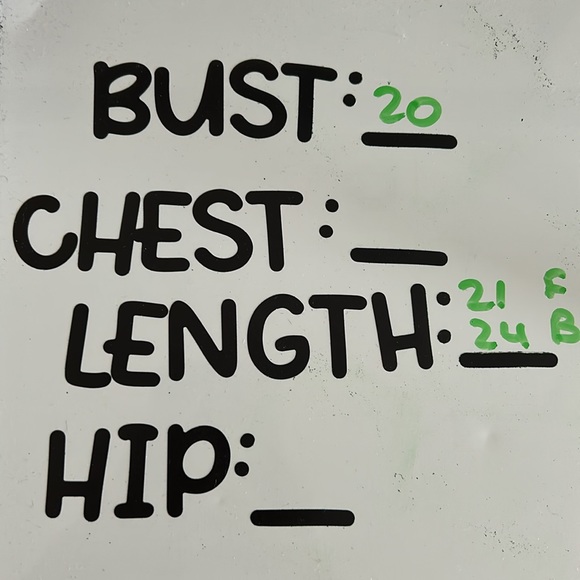 BUST: 20
CHEST: __
LENGTH: 21 F
24 B
HIP: __